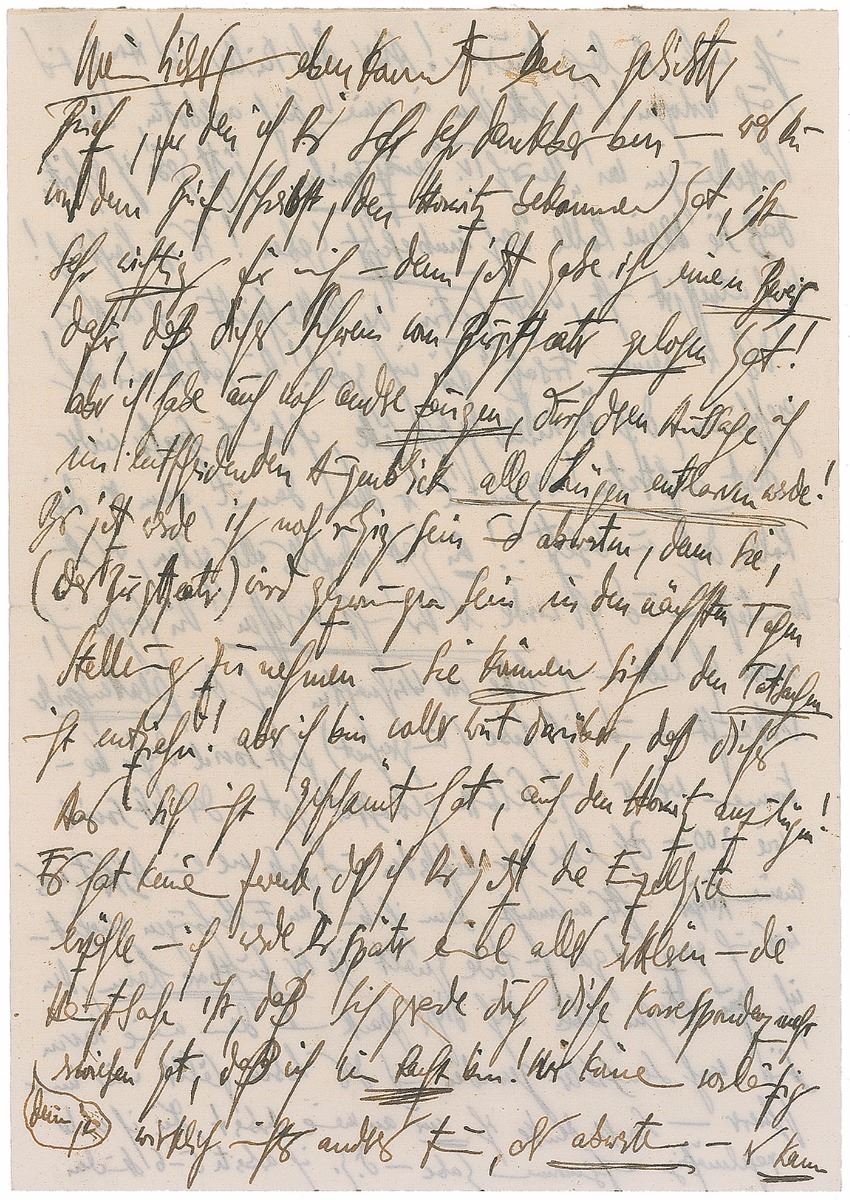 Mein Liebes, eben kommt Dein gestriger
Brief, für den ich Dir sehr sehr dankbar bin — was Du
von dem Brief schreibst, den Horwitz bekommen hat, ist
sehr wichtig für mich – denn jetzt habe ich einen Beweis
dafür, daß dieses Schwein vom Burgtheater gelogen hat!
aber ich habe auch noch andre Zeugen, durch deren Aussage ich
im entscheidenden Augenblick alle Lügen entlarven werde!
Bis jetzt werde ich noch ruhig sein und abwarten, denn sie,
(das Burgtheater) wird gezwungen sein in den nächsten Tagen
Stellung zu nehmen — sie können sich den Tatsachen
nicht entziehn! aber ich bin voller Wut darüber, daß dieses
Aas sich nicht geschämt hat, auch den Horwitz anzulügen!
Es hat keinen Zweck, daß ich Dir jetzt die Einzelheiten
erzähle — ich werde Dir später einmal alles erklären — die
Hauptsache ist, daß sich grade durch diese Korrespondenz mehr
erwiesen hat, daß ich im Recht bin! Wir können vorläufig
wirklich nichts andres tun, als abwarten — kann
denn ich